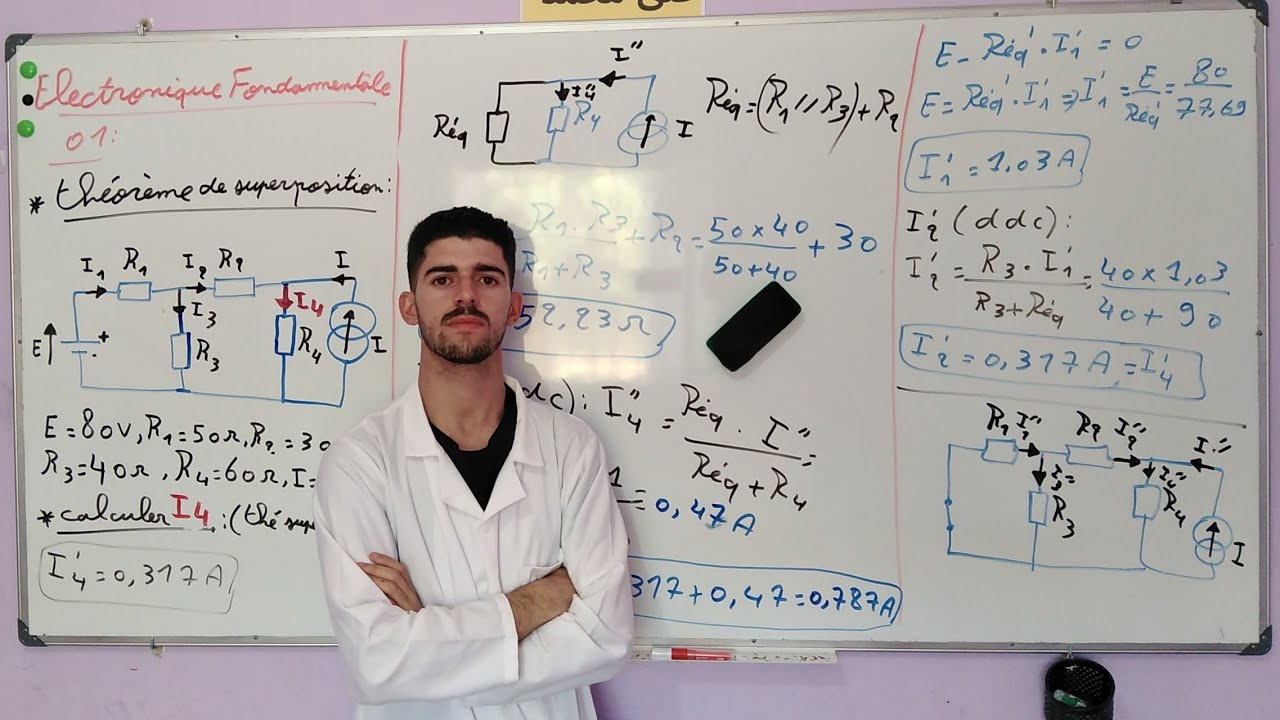 Electronique Fondamentale
01:
* théorème de superposition:
I1 R1 I2 R2 I
I3 I4
E + - R3 R4 I
E=80V, R1=50Ω, R2=30
R3=40Ω, R4=60Ω, I=
* calculer I4 : (thé sup
I'4=0,317A
I''
I''4
Réq R4 I
Réq=(R1//R3)+R2
R1.R3/R1+R3 +R2=50x40/50+40 +30
52,23Ω
ddc): I''4=Réq.I''/Réq+R4=
1
=0,47A
317+0,47=0,787A
E-Réq'.I'1=0
E=Réq'.I'1⇒I'1=E/Réq'=80/77,69
I'1=1,03A
I'2(ddc):
I'2=R3.I'1/R3+Réq=40x1,03/40+90
I'2=0,317A=I'4
R1 R2 I''2 I''
R3 R4 I